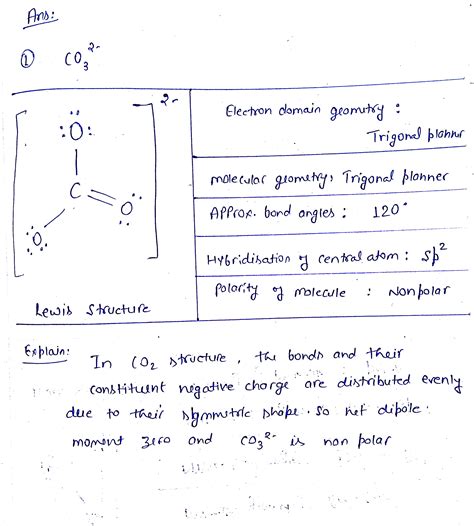 Ans:
① CO₃²⁻
2-
:Ö:
C
O
:O:
Lewis Structure
Electron domain geometry :
Trigonal planner
molecular geometry, Trigonal planner
Approx. bond angles : 120°
Hybridisation of central atom : sp²
Polarity of molecule : Nonpolar
Explain: In CO₂ structure, the bonds and their
constituent negative charge are distributed evenly
due to their symmetric shape. so net dipole
moment zero and CO₃²⁻ is non polar